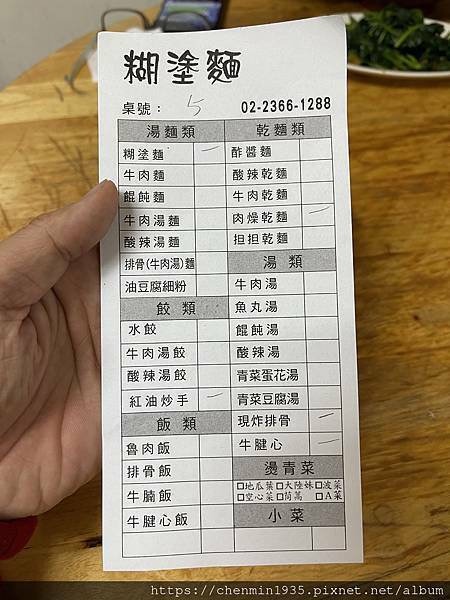 糊塗麵
桌號： 5 02-2366-1288
湯麵類 乾麵類
糊塗麵 酢醬麵
牛肉麵 酸辣乾麵
餛飩麵 牛肉乾麵
牛肉湯麵 肉燥乾麵
酸辣湯麵 担担乾麵
排骨(牛肉湯)麵 湯類
油豆腐細粉 牛肉湯
餃類 魚丸湯
水餃 餛飩湯
牛肉湯餃 酸辣湯
酸辣湯餃 青菜蛋花湯
紅油炒手 青菜豆腐湯
飯類 現炸排骨
魯肉飯 牛腱心
排骨飯 燙青菜
牛腩飯 □地瓜葉□大陸妹□波菜
□空心菜□茼蒿 □A菜
牛腱心飯 小菜
https://chenmin1935.pixnet.net/album